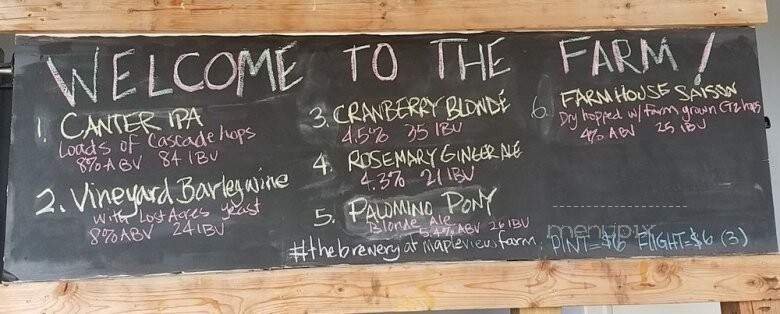 WELCOME TO THE FARM!
1. CANTER IPA
Loads of Cascade hops
8% ABV 84 IBU
2. Vineyard Barleywine
with Lost Acres yeast
8% ABV 24 IBU
3. CRANBERRY BLONDE
4.5% 35 IBU
4. ROSEMARY GINGER ALE
4.3% 21 IBU
5. PALOMINO PONY
Blonde Ale
5.4% ABV 26 IBU
6. FARMHOUSE SAISON
Dry hopped w/ farm grown CTZ hops
4% ABV 25 IBU
#thebreweryatmapleviewfarm
menupix
PINT=$6 FLIGHT=$6 (3)